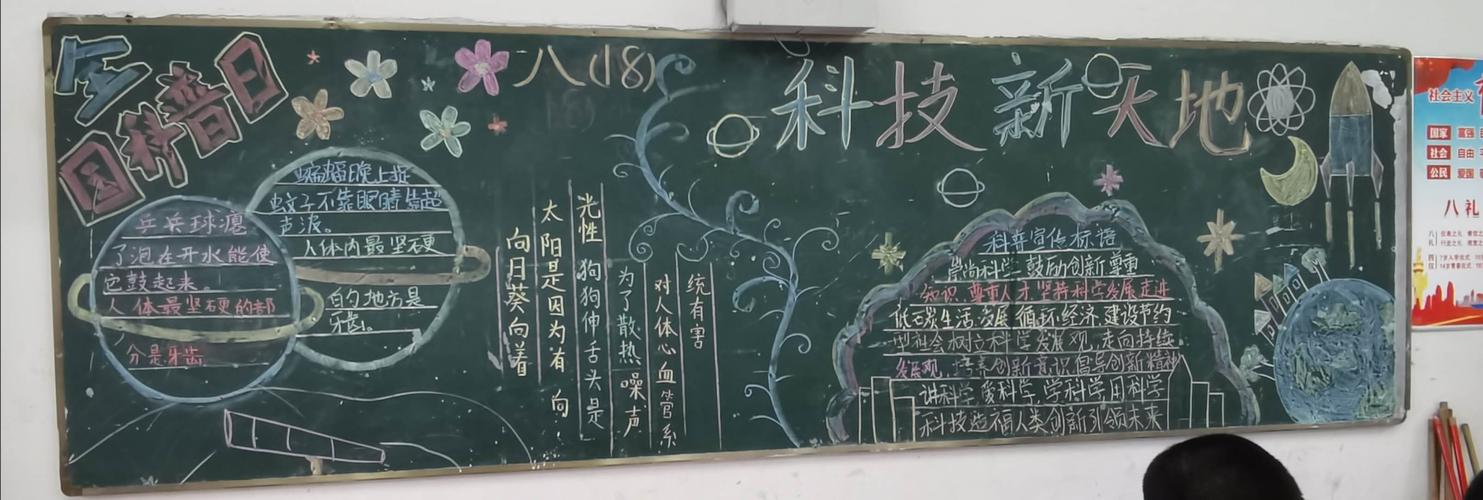 全
国科普日
八(18)
科技新天地
乒乓球瘪
了泡在开水能使
它鼓起来。
人体最坚硬的部
分是牙齿
蝙蝠晚上捉
蚊子不靠眼睛靠超
声波。
人体内最坚硬
的地方是
牙齿。
向日葵向着
太阳是因为有向
光性 狗狗伸舌头是
为了散热 噪声
对人体心血管系
统有害
科普宣传标语
崇尚科学 鼓励创新 尊重
知识,尊重人才 坚持科学发展 走进
低碳生活 发展循环经济 建设节约
型社会 树立科学发展观,走向持续
发展观,培养创新意识 倡导创新精神
讲科学 爱科学,学科学 用科学
科技造福人类 创新引领未来
社会主义
国家 富强
社会 自由
公民 爱国
八礼